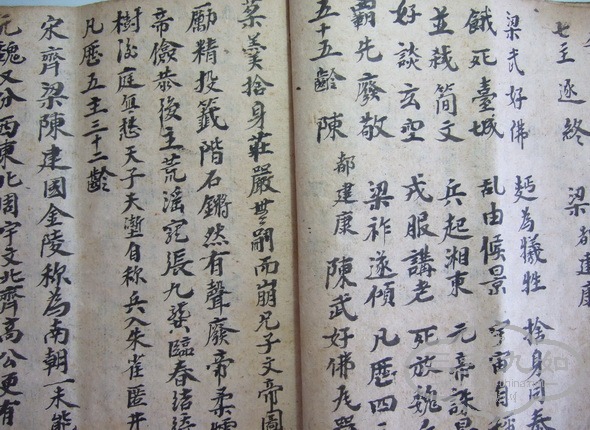 七主逐終 梁都建康
梁武好佛 麫為犧牲 捨身同泰
餓死臺城 亂由侯景 宇宙自
並栈簡文 兵起湘東 元帝誅景
好談玄空 戎服講老 死放魏
霸先廢敬 梁祚遂傾 凡歷四
五十五齡 陳 都建康 陳武好佛 瓦器
菜羹捨身莊嚴無嗣而崩兄子文帝圖
勵精投籤階石鏘然有聲廢帝柔懦
帝儉恭後主荒淫寵張臨春結
樹後庭無愁天子天塹自称兵入朱雀匿井
凡歷五主三十二齡
宋齊梁陳建國金陵称為南朝一未能
元魏又分西東北周宇文北齊高公更有